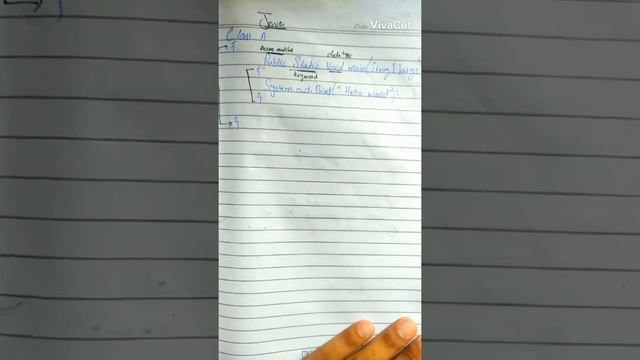 Java
VivaCut
Class A
{
Access modifier data type
Public Static Void main(String[] args)
{ keyword
System.out.Print("Hello world");
}
}